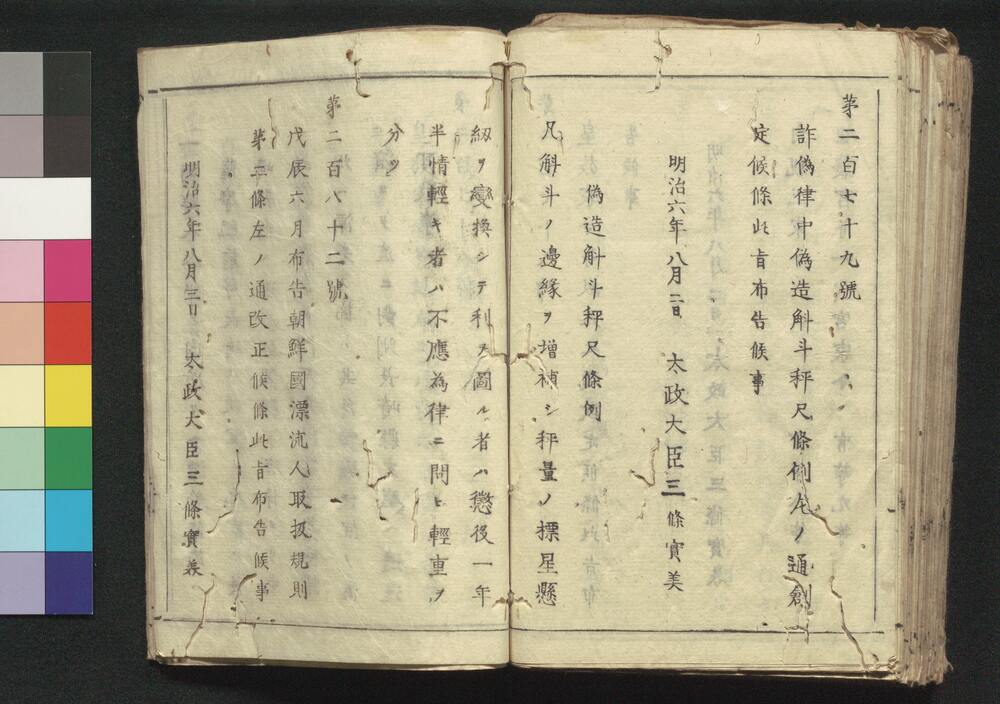 第二百七十九號
詐偽律中偽造斛斗秤尺條例左ノ通創
定候條此旨布告候事
明治六年八月二日 太政大臣三條實美
偽造斛斗秤尺條例
凡斛斗ノ邊緣ヲ增補シ秤量ノ標星懸
紐ヲ變換シテ利ヲ圖ル者ハ懲役一年
半情輕キ者ハ不應為律ニ問ヒ輕重ヲ
分ツ
第二百八十二號
戊辰六月布告朝鮮國漂流人取扱規則
第三條左ノ通改正候條此旨布告候事
明治六年八月三日 太政大臣三條實美